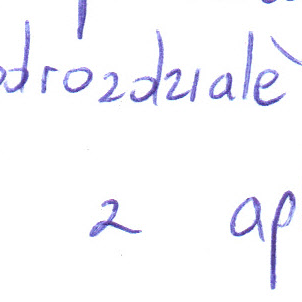 odrozdziale
z ap